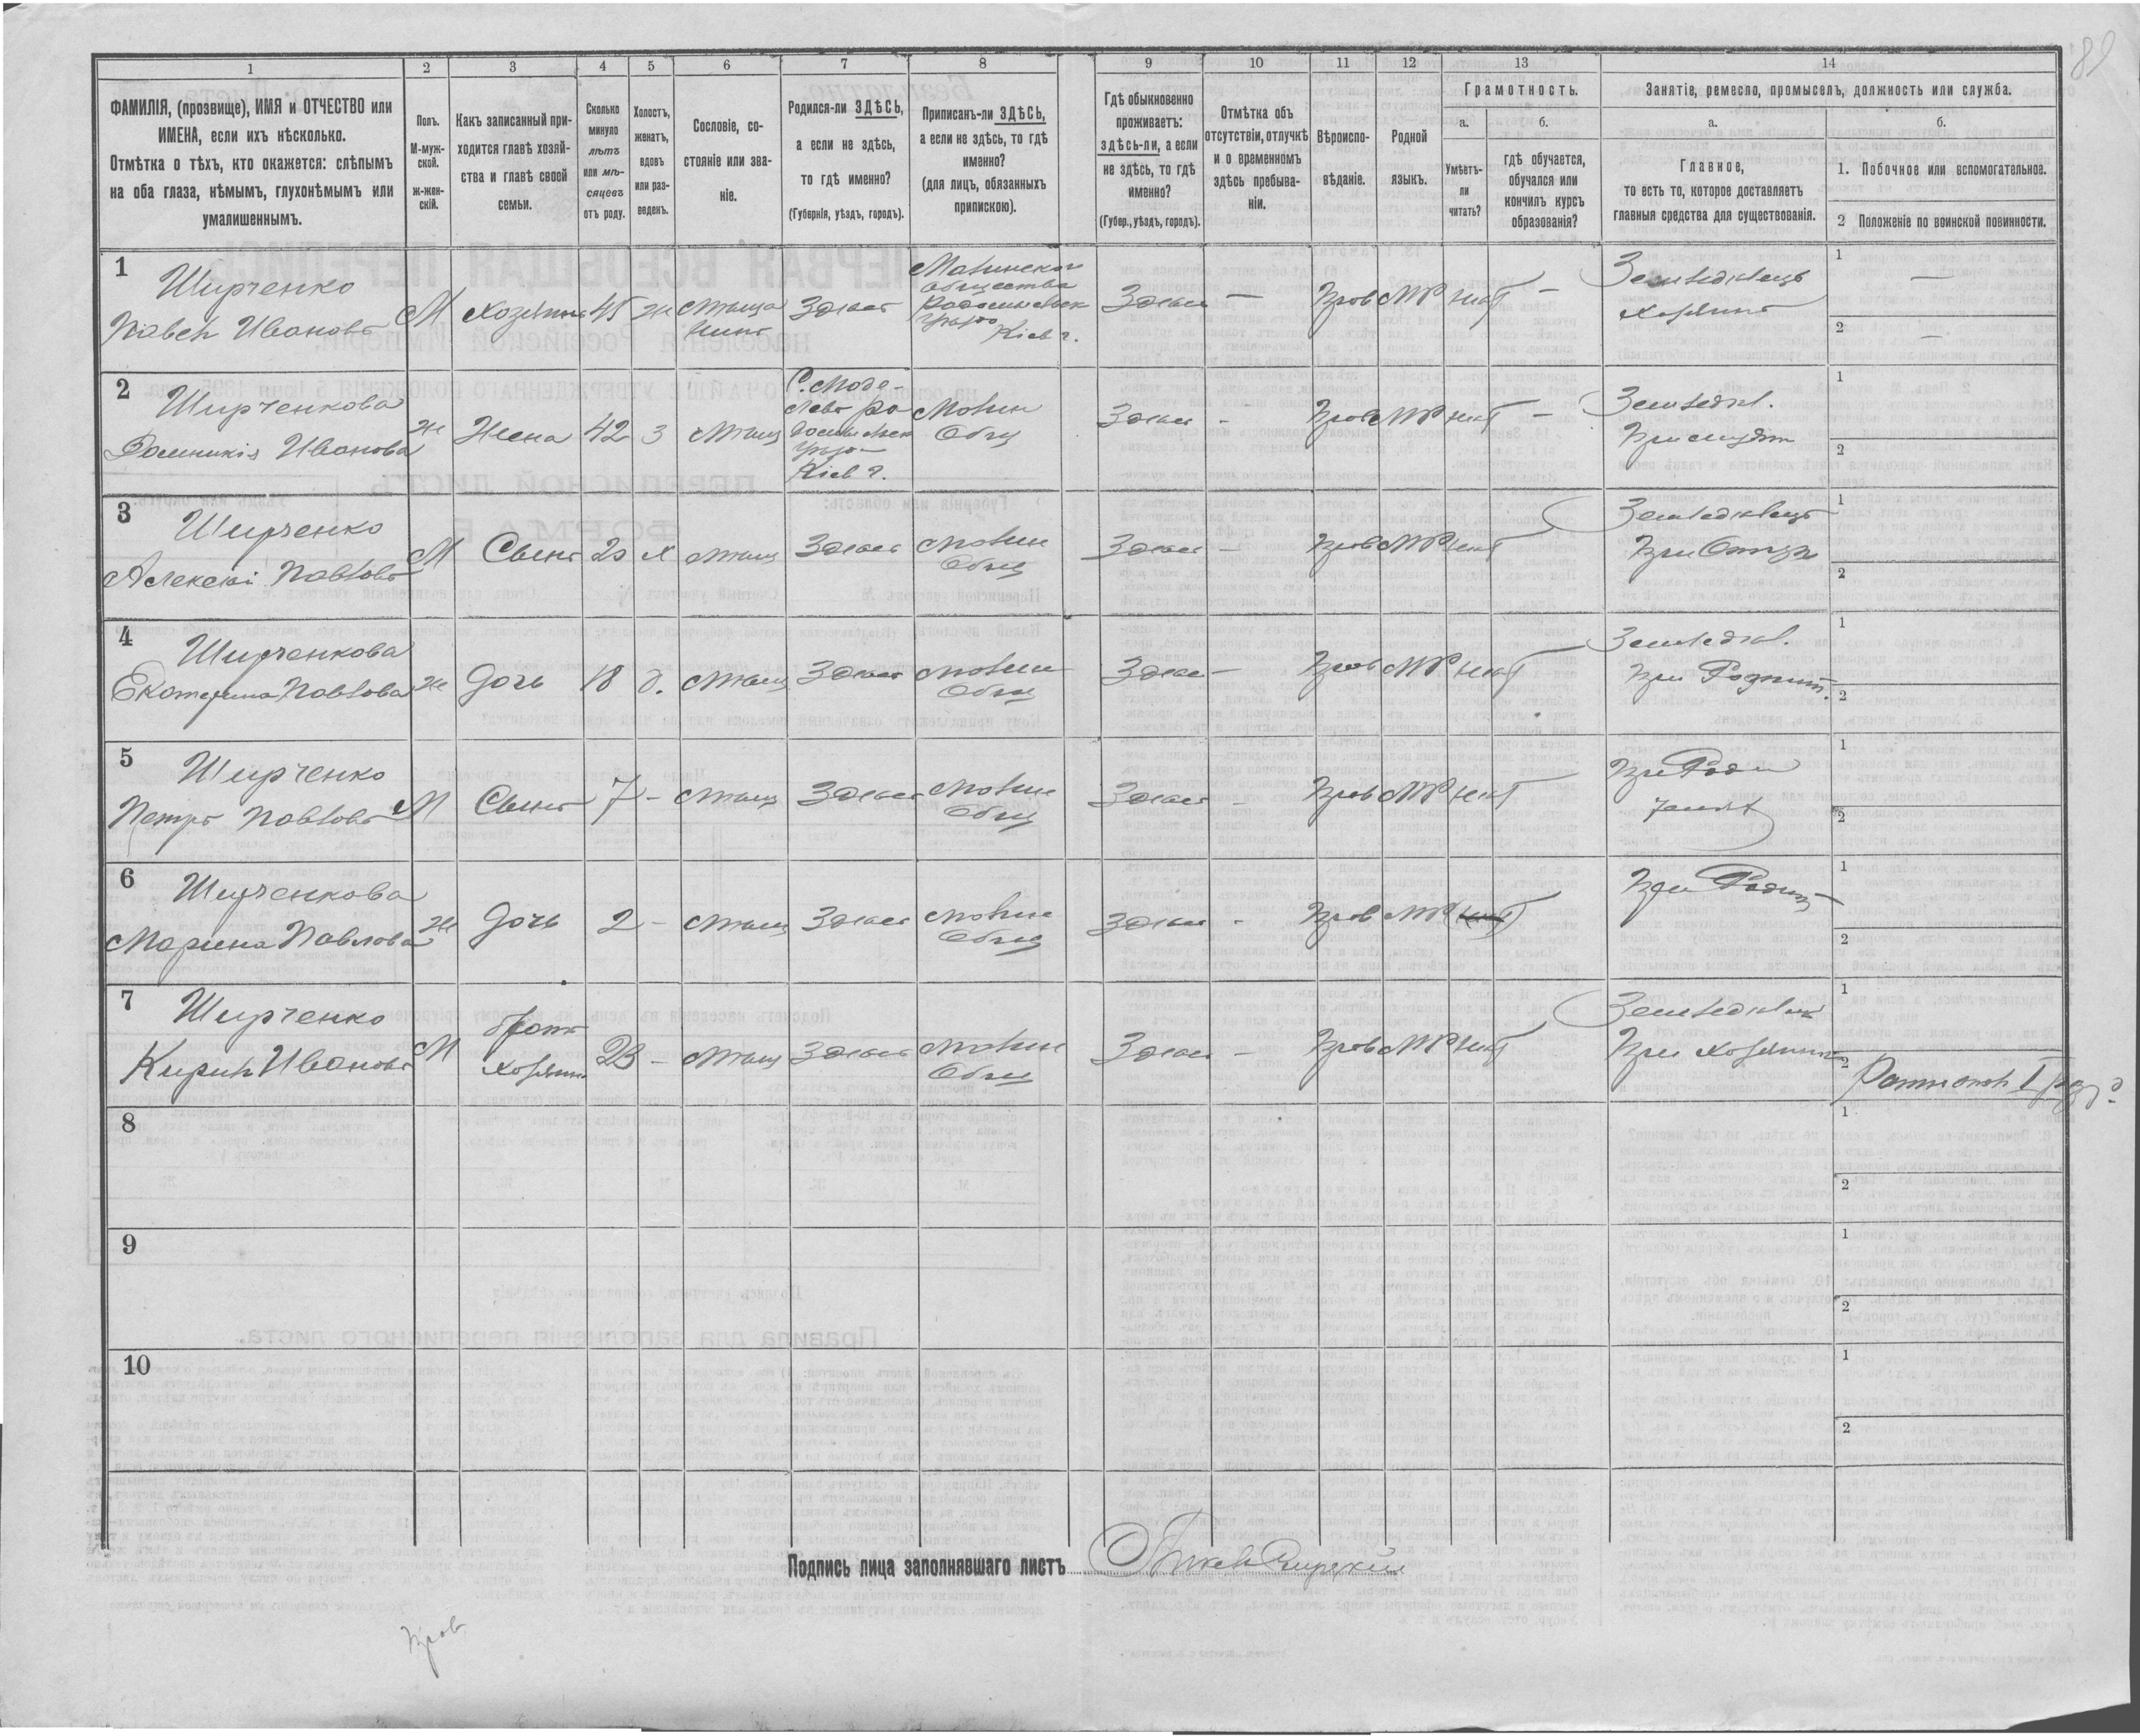 1 2 3 4 5 6 7 8 9 10 11 12 13 14
ФАМИЛІЯ, (прозвище), ИМЯ и ОТЧЕСТВО или
ИМЕНА, если ихъ нѣсколько.
Отмѣтка о тѣхъ, кто окажется: слѣпымъ
на оба глаза, нѣмымъ, глухонѣмымъ или
умалишеннымъ.
Полъ.
М-муж-
ской.
ж-жен-
скій.
Какъ записанный при-
ходится главѣ хозяй-
ства и главѣ своей
семьи.
Сколько
минуло
лѣтъ
или мѣ-
сяцевъ
отъ роду.
Холостъ,
женатъ,
вдовъ
или раз-
веденъ.
Сословіе, со-
стояніе или зва-
ніе.
Родился-ли ЗДѢСЬ,
а если не здѣсь,
то гдѣ именно?
(Губернія, уѣздъ, городъ).
Приписанъ-ли ЗДѢСЬ,
а если не здѣсь, то гдѣ
именно?
(для лицъ, обязанныхъ
припискою).
Гдѣ обыкновенно
проживаетъ:
здѣсь-ли, а если
не здѣсь, то гдѣ
именно?
(Губер., уѣздъ, городъ).
Отмѣтка объ
отсутствіи, отлучкѣ
и о временномъ
здѣсь пребыва-
ніи.
Вѣроиспо-
вѣданіе.
Родной
языкъ.
Грамотность.
а.
Умѣетъ-
ли
читать?
б.
гдѣ обучается,
обучался или
кончилъ курсъ
образованія?
Занятіе, ремесло, промыселъ, должность или служба.
а.
Главное,
то есть то, которое доставляетъ
главныя средства для существованія.
б.
1. Побочное или вспомогательное.
2 Положеніе по воинской повинности.
1
Ширченко
Павелъ Ивановъ
М Хозяинъ 45 ж Мѣща
нинъ
Здѣсь
Малинскаго
общества
Радомысльск
Кіев г.
Здѣсь — Прав МР нѣт —
Земледѣлецъ
хозяинъ
1 —
2 —
2
Ширченкова
Домникія Иванова
ж Жена 42 З Мѣщ
Кіев г.
Малин
Общ
Здѣсь - Прав МР нѣт —
Земледѣл.
1
2
3
Ширченко
Алексѣй Павловъ
М Сынъ 20 х Мѣщ Здѣсь Малин
Общ
Здѣсь — Прав МР нѣт
Земледѣлецъ
При Отцѣ
1
2
4
Ширченкова
Екатерина Павлова
ж Дочь 18 д. Мѣщ Здѣсь Малин
Общ
Здѣсь — Прав МР нѣт
Земледѣл.
При Родит.
1
2
5
Ширченко
Петръ Павловъ
М Сынъ 7 - Мѣщ Здѣсь Малин
Общ
Здѣсь - Прав МР нѣт
При Роди
1
2
6
Ширченкова
Марина Павлова
ж Дочь 2 - Мѣщ Здѣсь Малин
Общ
Здѣсь - Прав МР
При Родит
1
2
7
Ширченко
Кирилъ Ивановъ
М Братъ
хозяина
23 - Мѣщ Здѣсь Малин
Общ
Здѣсь — Прав МР нѣт
При хозяинѣ
1
2
8
1
2
9
1
2
10
1
2
Подпись лица заполнявшаго листъ
Прав